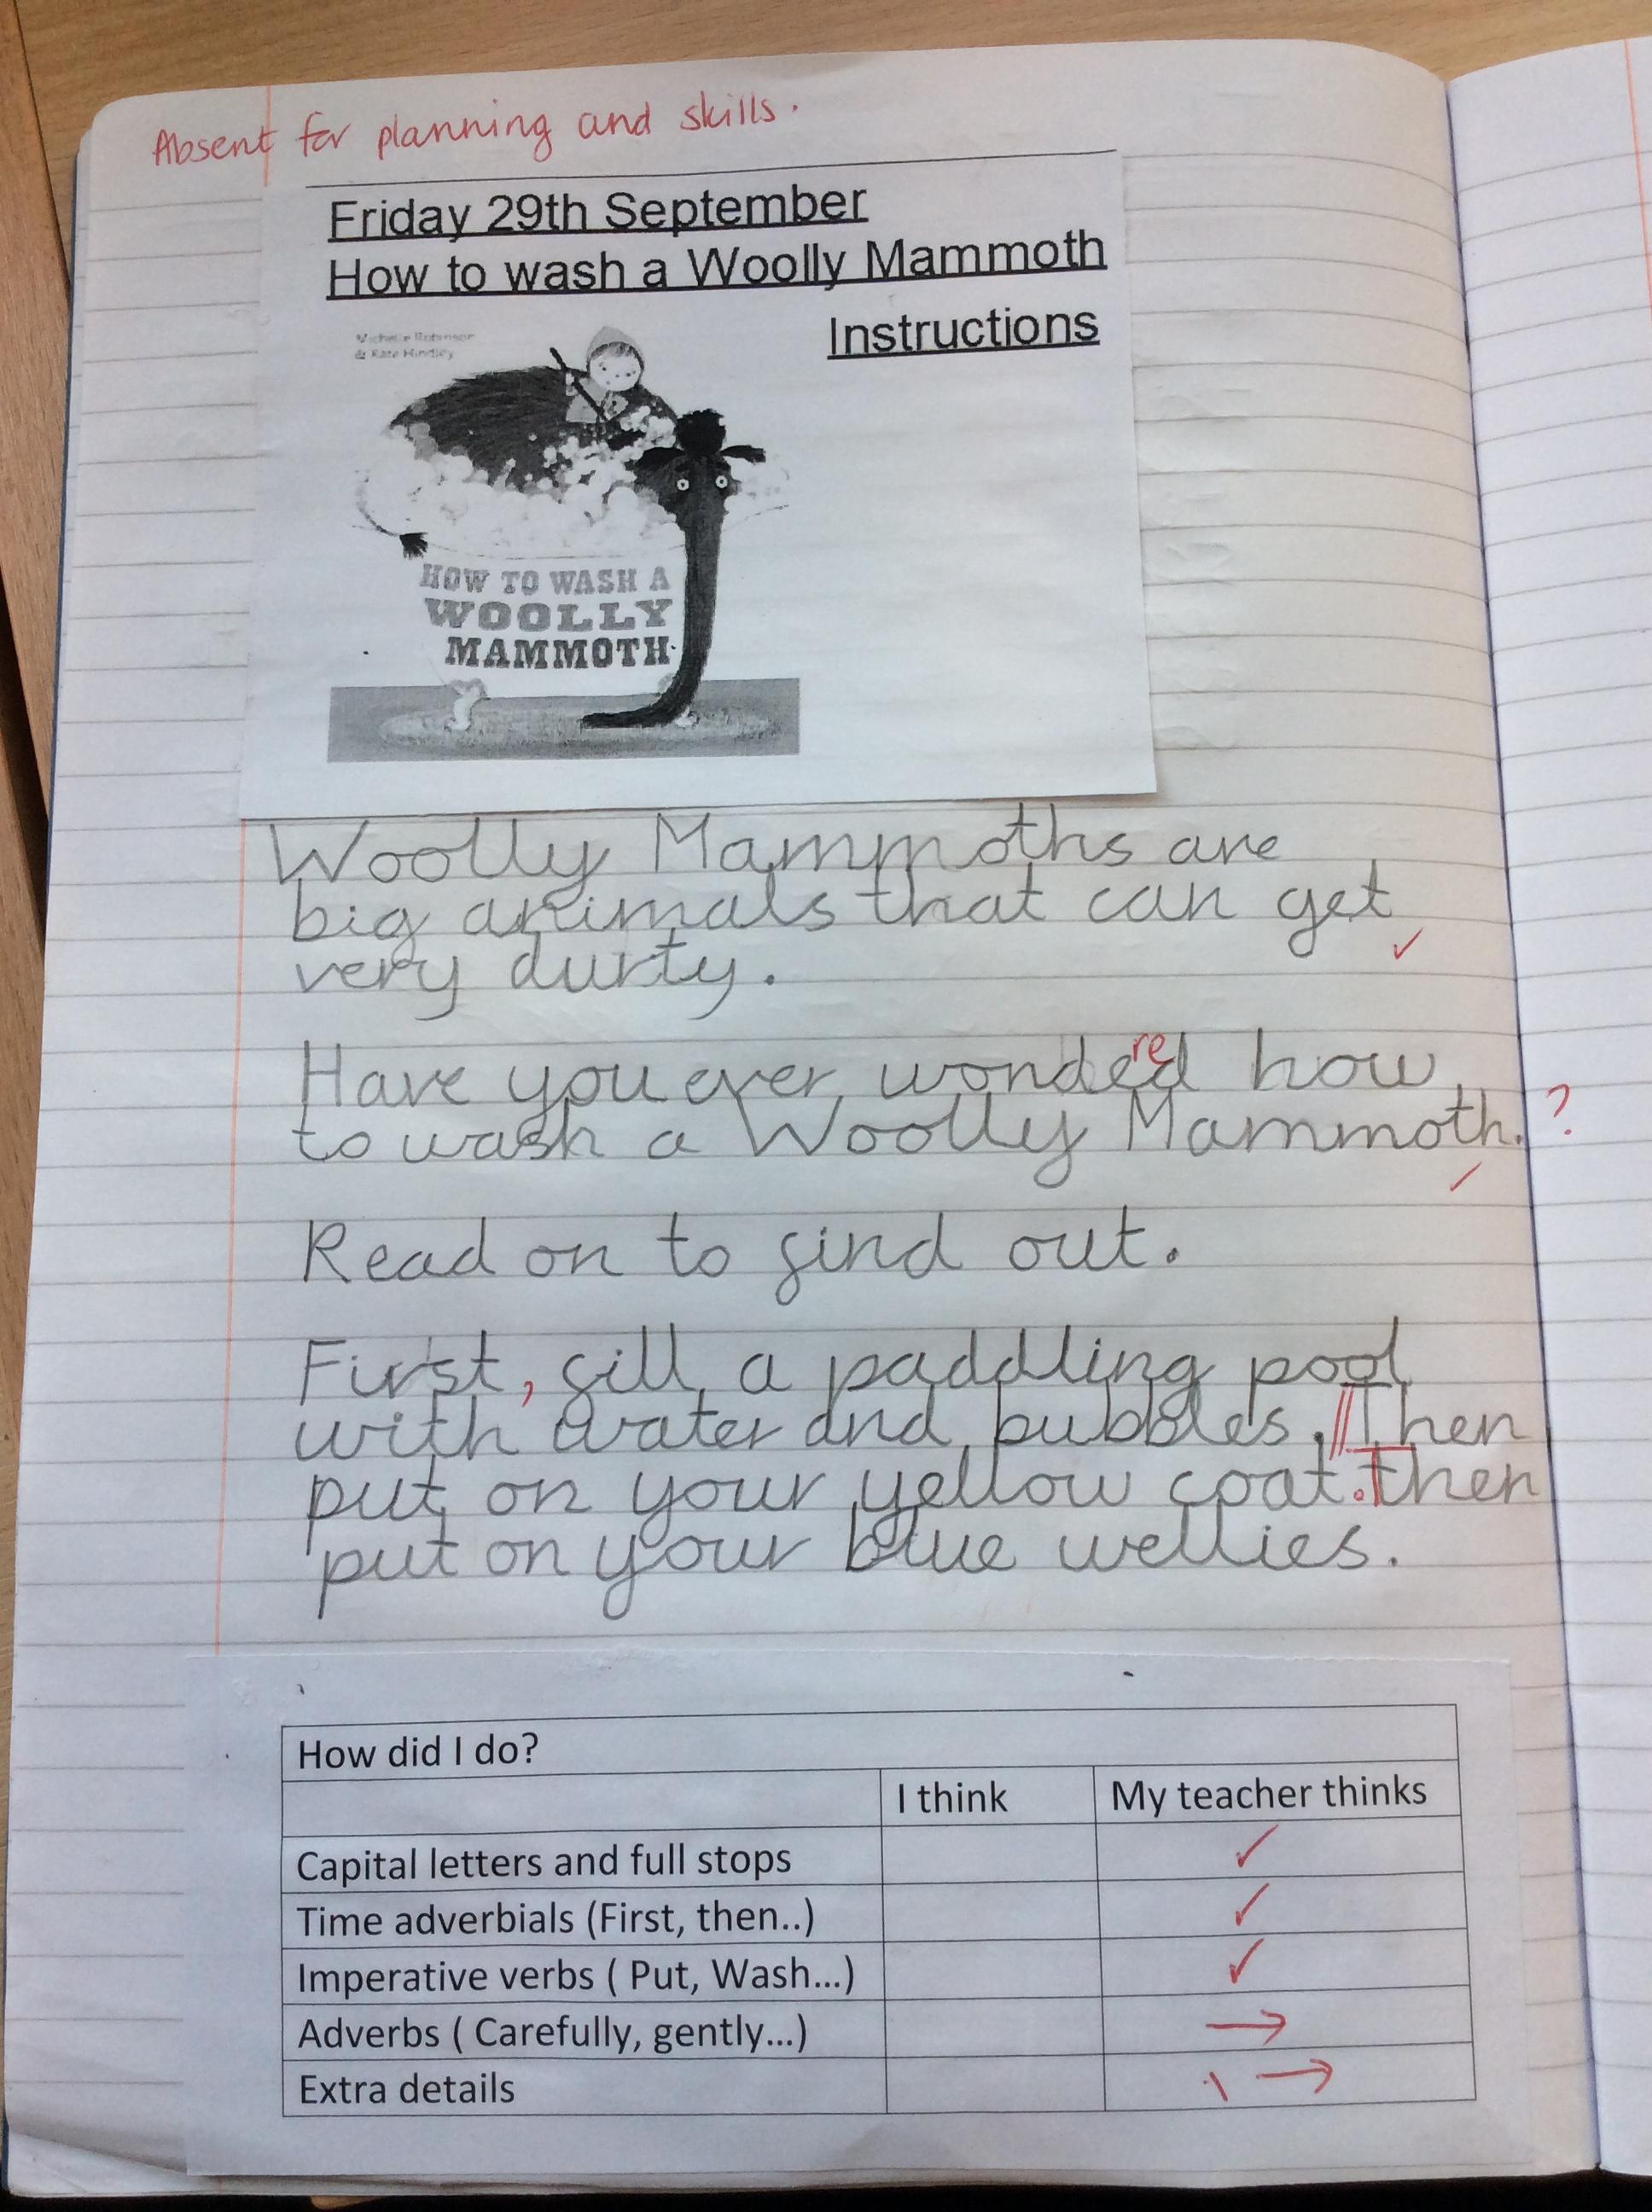 Absent for planning and skills.
Friday 29th September
How to wash a Woolly Mammoth
Instructions
Michelle Robinson
& Kate Hindley
HOW TO WASH A
WOOLLY
MAMMOTH
Woolly Mammoths are
big animals that can get
very durty.
Have you ever wondered how
to wash a Woolly Mammoth. ?
Read on to find out.
First, fill a paddling pool
with water and bubbles. // Then
put on your yellow coat. Then
put on your blue wellies.
How did I do?
I think My teacher thinks
Capital letters and full stops ✓
Time adverbials (First, then..) ✓
Imperative verbs ( Put, Wash...) ✓
Adverbs ( Carefully, gently...) →
Extra details →